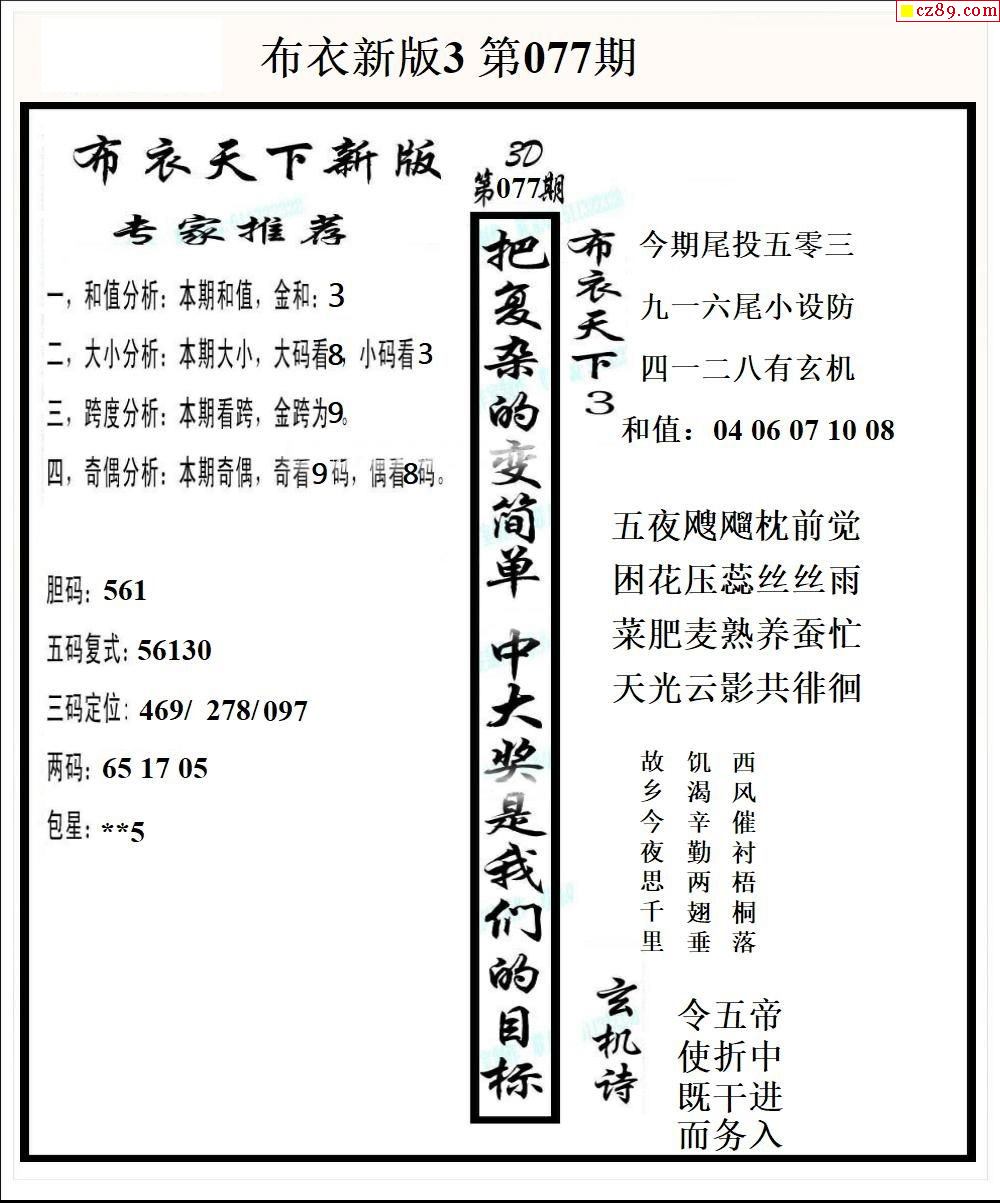 cz89.com
布衣新版3 第077期
布衣天下新版
专家推荐
一，和值分析：本期和值，金和：3
二，大小分析：本期大小，大码看8，小码看3
三，跨度分析：本期看跨，金跨为9。
四，奇偶分析：本期奇偶，奇看9码，偶看8码。
胆码：561
五码复式：56130
三码定位：469/ 278/097
两码：65 17 05
包星：**5
3D
第077期
把复杂的变简单 中大奖是我们的目标
布衣天下3
今期尾投五零三
九一六尾小设防
四一二八有玄机
和值：04 06 07 10 08
五夜飕飗枕前觉
困花压蕊丝丝雨
菜肥麦熟养蚕忙
天光云影共徘徊
故乡今夜思千里
饥渴辛勤两翅垂
西风催衬梧桐落
玄机诗
令五帝
使折中
既干进
而务入